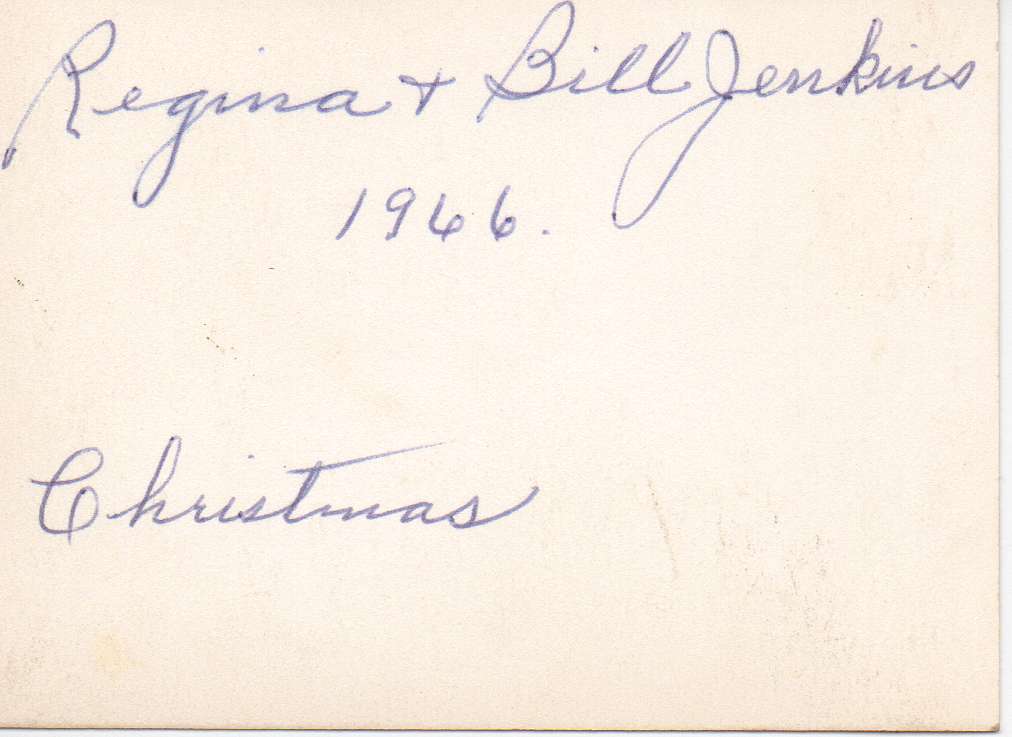 Regina + Bill Jenkins
1966.
Christmas